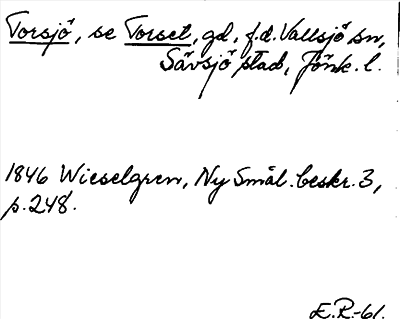 Torsjö, se Torset, gd, f.d. Vallsjö sn,
Sävsjö stad, Jönk. l.
1846 Wieselgren, Ny Smål. beskr. 3,
p. 248.
E.R.-61.